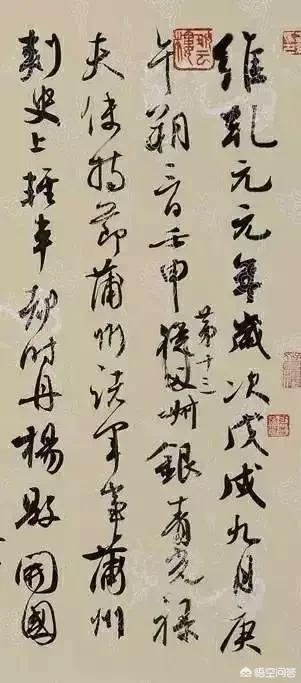 維乾元元年歲次戊戌九月庚
午朔三日壬申第十三從父叔銀青光祿
夫使持節蒲州諸軍事蒲州
刺史上輕車都尉丹楊縣開國
悟空问答